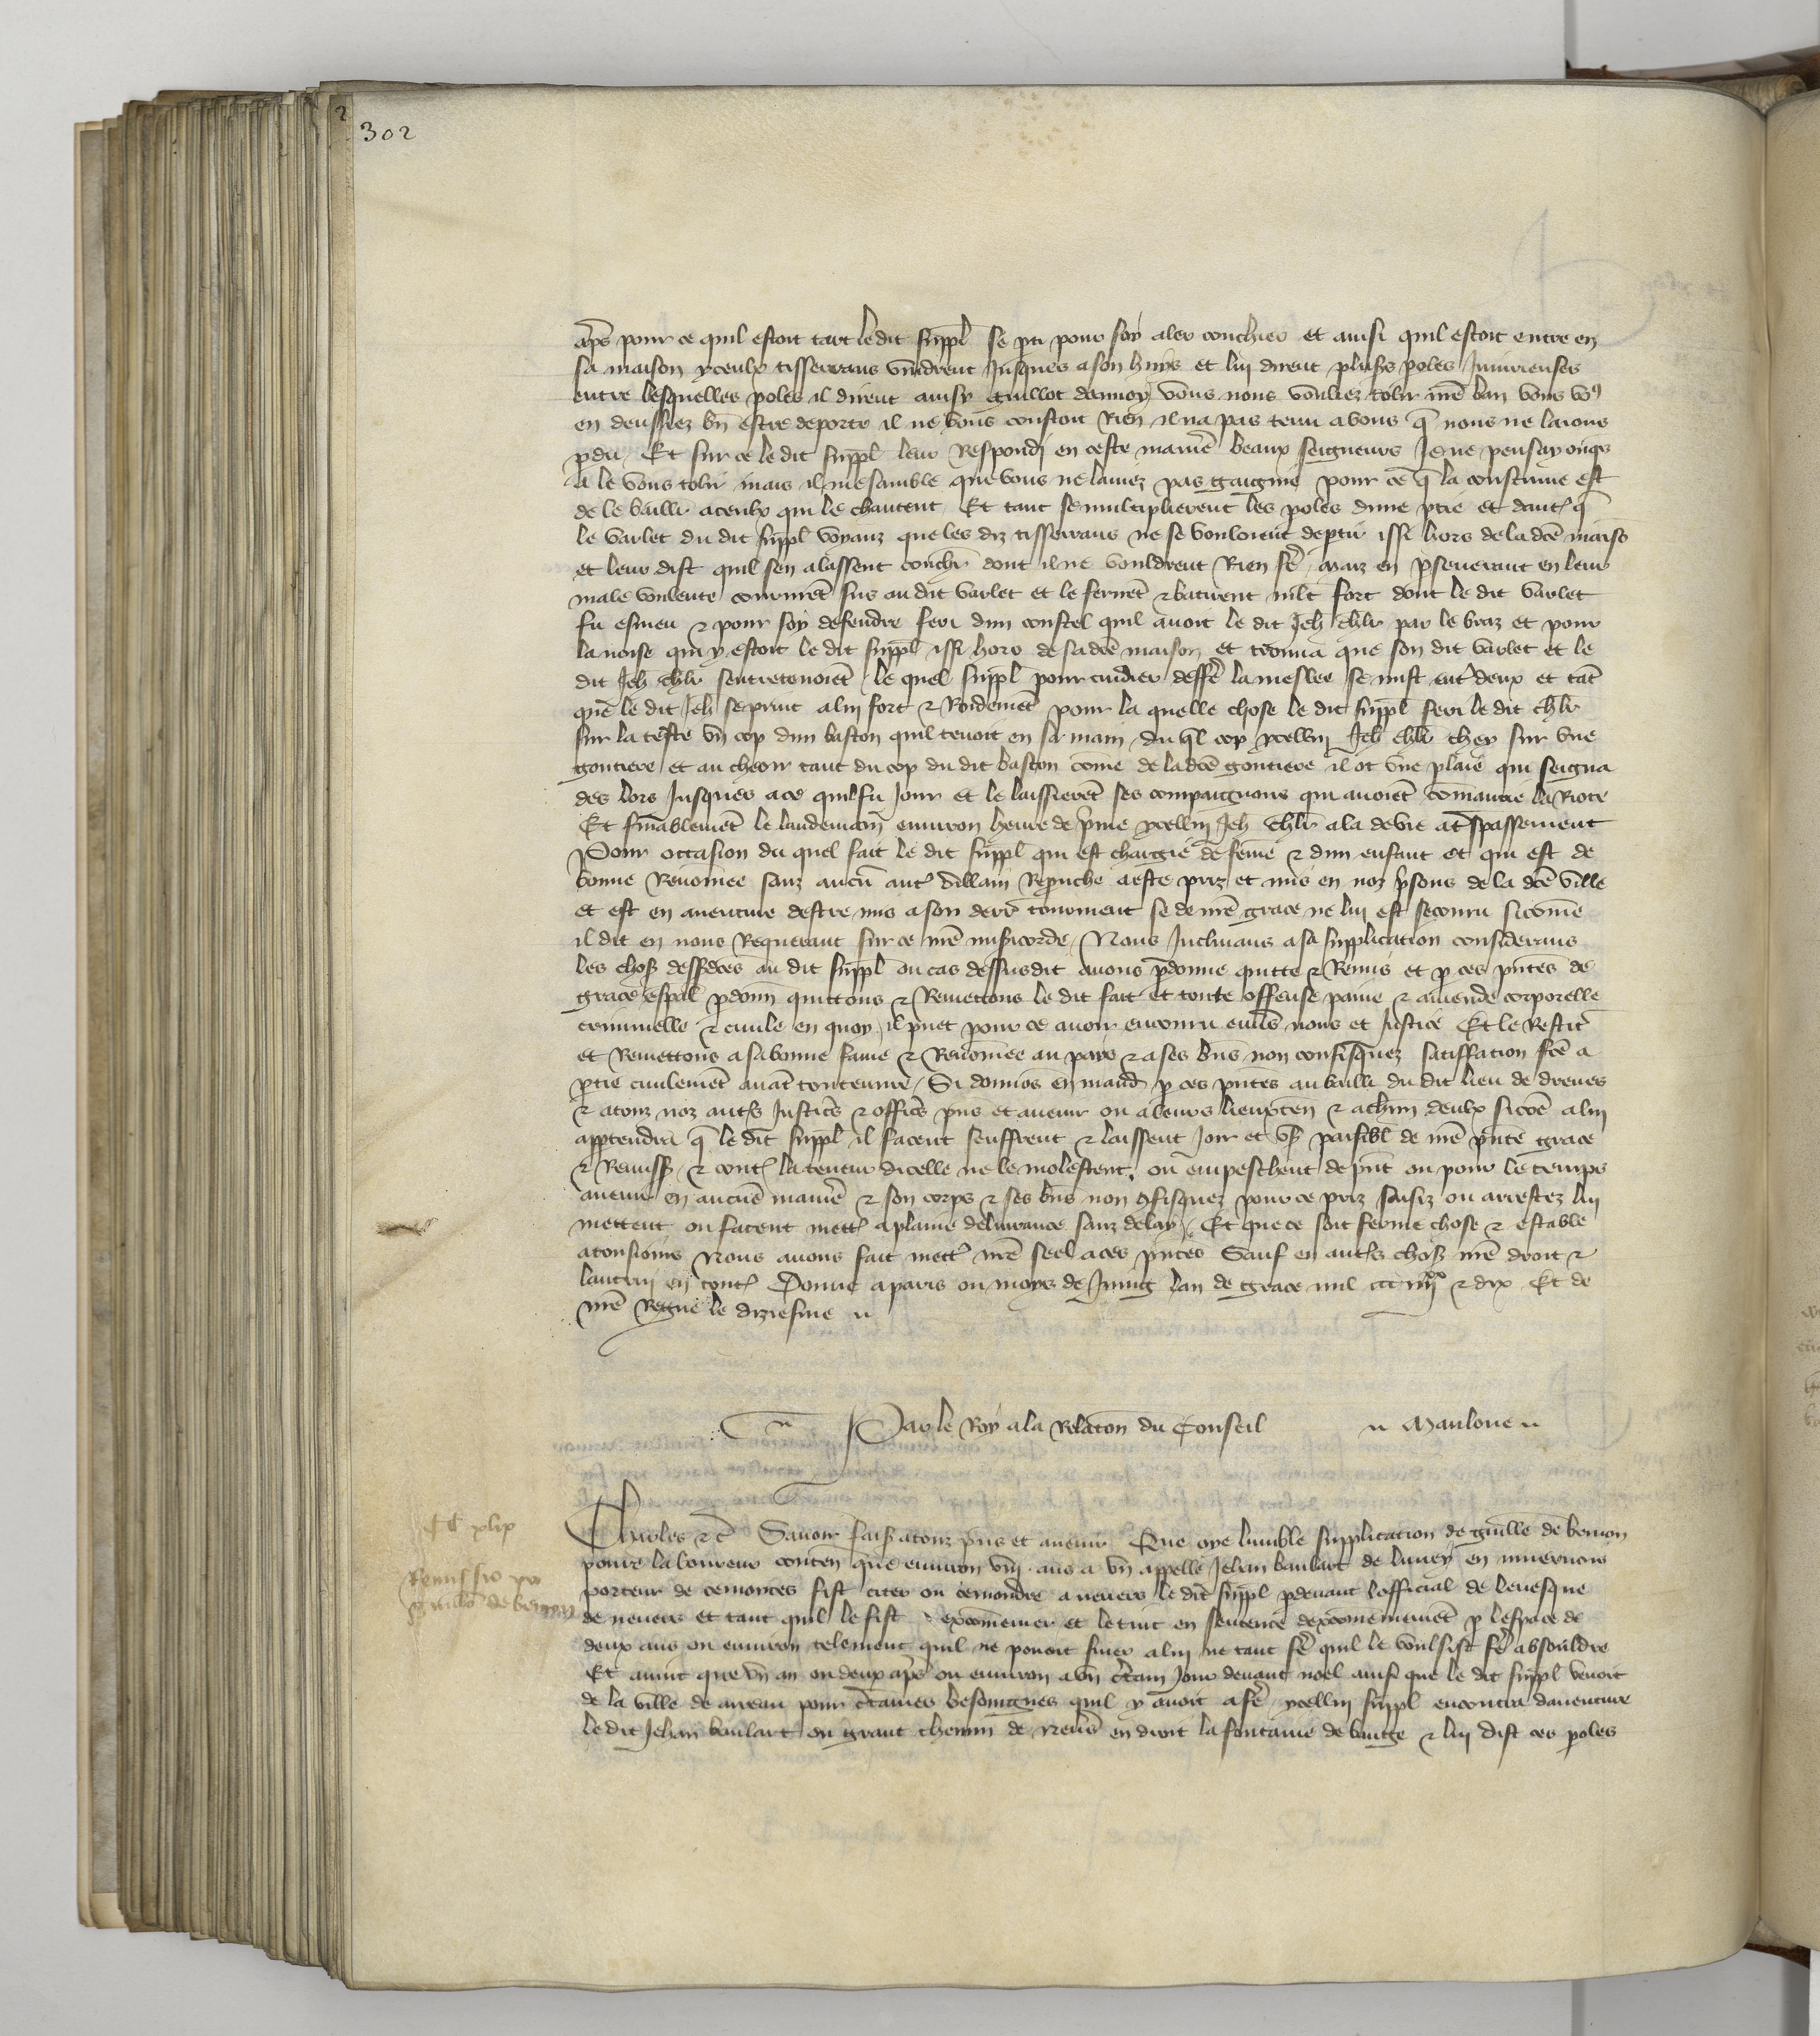 302
aps pour ce quil estoit tart ledit suppl se pti pour soy aler couchier et ainsi quil estoit entre en
sa maison yceulx tisserrans vindrent Jusques a son huys et lui dirent plusrs poles Jniurieuses
entre lesquelles poles il dirent ainsy guillot vous nous vouliez tolir nre ban vous vo9
en deussiez bn estre deporte il ne vous coustoit Rien il na pas tenu a vous q nous ne laions
pdu Et sur ce le dit suppl leur Respondj en ceste manie beaux seigneurs Je ne pensay onqs
a le vous tolir mais il me samble que vous ne lauiez pas gaignie pour ce q la coustume est
de le baillr a ceulx qui le chantent Et tant se multiplierent les poles dune ptie et dautr q
le varlet du dit suppl voyanz que les diz tisserrans ne se vouloient deptir issi hors de la dce maiso
et leur dist quil sen alassent couchr dont il ne vouldrent Rien fe maiz en pseuerant en leur
male voulente coururet sus au dit varlet et le feriret & batirent mlt fort dont le dit varlet
fu esmeu & pour soy defendre feri dun coustel quil auoit le dit Jeh chlr par le braz et pour
la noise qui y estoit le dit suppl issi hors de sa dce maison et trouua que son dit varlet et le
dit Jeh chlr sentretenoiet le quel suppl pour cuidier deffe la meslee se mist entr deux et tat
que le dit Jeh se print a lui fort & Roidemet pour la quelle chose le dit suppl feri le dit chlr
sur la teste vn cop dun baston quil tenoit en sa main du ql cop ycellui Jeh chlr chey sur vne
goutiere et au cheoir tant du cop du dit baston come de la dce goutiere il ot vne plaie qui seigna
des lors Jusques a ce quil fu Jour et le laissieret ses compaignons qui auoiet comancie la Riote
Et finablemet le landemain enuiron heure de pime ycellui Jeh chlr ala de vie a tspassement
Pour occasion du quel fait le dit suppl qui est chargie de feme & dun enfant et qui est de
bonne Renomee sanz aucu autr villain Repruche a este priz et mis en noz psons de la dce ville
et est en auenture destre mis a son derr tourment se de nre grace ne lui est secouru sicome
il dit en nous Requerant sur ce nre misicorde Nous Jnclinans a sa supplication considerans
les chos dessdces au dit suppl ou cas dessusdit auons pdonne quitte & Remis et p ces pntes de
grace espal pdonn quittons & Remettons le dit fait et toute offense paine & amende corporelle
criminelle & ciuile en quoy il puet pour ce auoir encouru enus nous et Justice Et le Restit
et Remettons a sa bonne fame & Renomee au pays & a ses bns non confisquez satiffation fce a
ptie ciuilemet auat toute euure Si donnos en mand p ces pntes au bailli du dit lieu de dreues
& a touz noz autrs Justices & offices pns et auenir ou a leurs lieuxten & a chun deulx sicoe a lui
appttendra q le dit suppl il facent seuffrent & laissent Joir et vs paisibl de nre pnte grace
& Remiss & contr la teneur dicelle ne le molestent ou empeschent de pnt ou pour le temps
auenir en aucue manie & son corps & ses bns non 9fisquez pour ce priz saisiz ou arrestez lui
mettent ou facent mettr a plaine deliurance sanz delay Et que ce soit ferme chose & estable
a tousiours Nous auons fait mettr nre seel a ces pntes Sauf en autrs chos nre droit &
lautrui en toutr Donne a paris ou moys de Juing lan de grace mil ccc iiijxx & dix Et de
nre Regne le diziesme
Par le Roy a la Relation du Conseil Mauloue
Charles &c Sauoir fais a touz pns et auenir Que oye lumble supplication de guille de bernon
poure laboureur conten que enuiron viij ans a vn appelle Jehan baulart de luuey en niuernois
porteur de cemonces fist citer ou cemondre a neuers le dit suppl pdeuant lofficial de leuesque
de neuers et tant quil le fist excomenier et le tint en sentence dexcomeniemet p lespace de
deux ans ou enuiron telement quil ne pouoit finer a lui ne tant fe quil le voulsist fe absouldre
Et auint que vn an ou deux aps ou enuiron a vn ctain Jour deuant noel ainsi que le dit suppl venoit
de la ville de pour ctaines besoingnes quil y auoit a fe ycellui suppl encontra dauenture
le dit Jehan baulart ou grant chemin de neus en droit la fontaine de bauge & lui dist ces poles
CC xlix
Remissio pro
Guillo de bernon